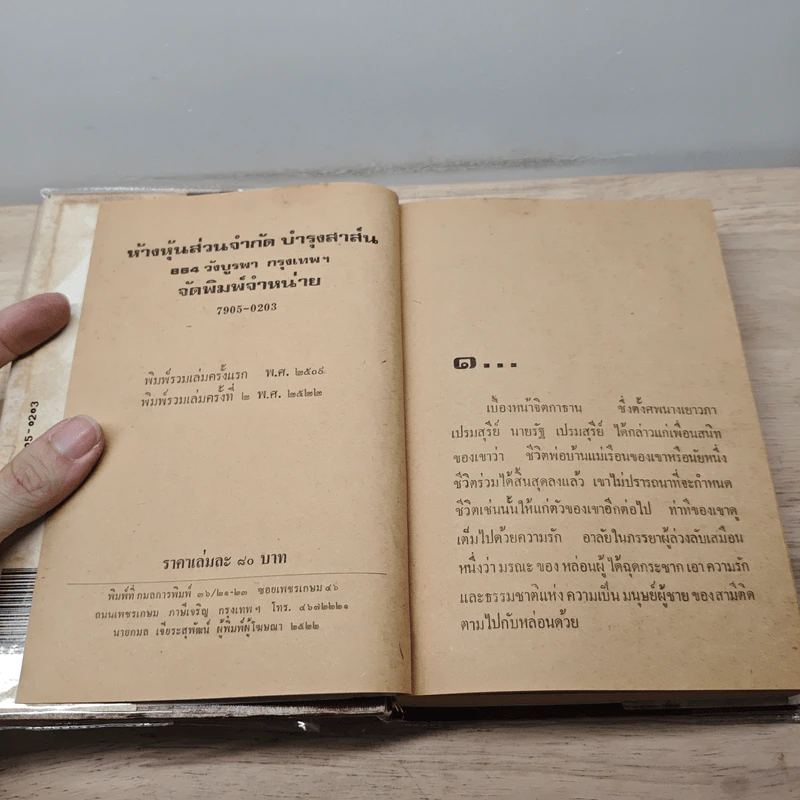 ห้างหุ้นส่วนจำกัด บำรุงสาส์น
884 วังบูรพา กรุงเทพฯ
จัดพิมพ์จำหน่าย
7905-0203
พิมพ์รวมเล่มครั้งแรก พ.ศ. ๒๕๐๙
พิมพ์รวมเล่มครั้งที่ ๒ พ.ศ. ๒๕๒๒
ราคาเล่มละ ๘๐ บาท
พิมพ์ที่ กมลการพิมพ์ ๓๖/๒๑-๒๓ ซอยเพชรเกษม ๔๖
ถนนเพชรเกษม ภาษีเจริญ กรุงเทพฯ โทร. ๔๖๗๒๒๒๑
นายกมล เจียระสุพัฒน์ ผู้พิมพ์ผู้โฆษณา ๒๕๒๒
05-0203
๑...
เบื้องหน้าจิตกาธาน ซึ่งตั้งศพนางเยาวภา
เปรมสุรีย์ นายรัฐ เปรมสุรีย์ ได้กล่าวแก่เพื่อนสนิท
ของเขาว่า ชีวิตพ่อบ้านแม่เรือนของเขาหรือนัยหนึ่ง
ชีวิตร่วมได้สิ้นสุดลงแล้ว เขาไม่ปรารถนาที่จะกำหนด
ชีวิตเช่นนั้นให้แก่ตัวของเขาอีกต่อไป ท่าทีของเขาดู
เต็มไปด้วยความรัก อาลัยในภรรยาผู้ล่วงลับเสมือน
หนึ่งว่า มรณะ ของ หล่อนผู้ ได้ฉุดกระชาก เอา ความรัก
และธรรมชาติแห่ง ความเป็น มนุษย์ผู้ชาย ของ สามีติด
ตามไปกับหล่อนด้วย